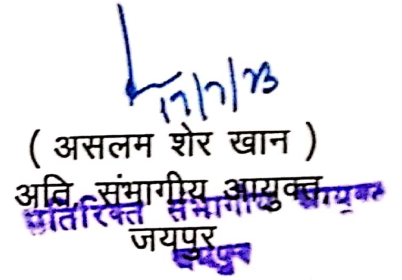 17/7/23
( असलम शेर खान )
अति. संभागीय आयुक्त,
अतिरिक्त संभागीय आयुक्त
जयपुर
जयपुर